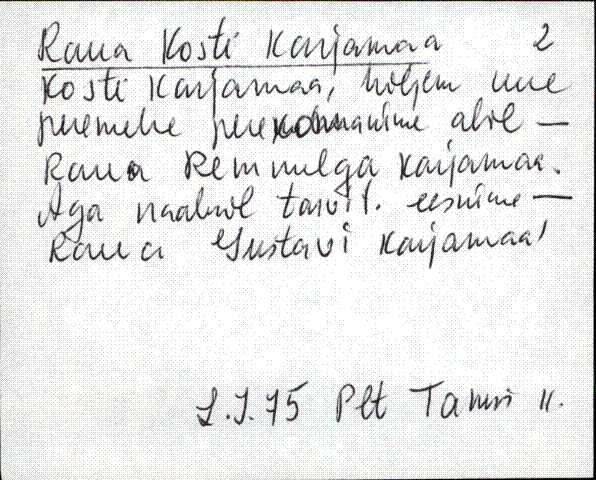 Raua Kosti Karjamaa 2
Kosti Karjamaa, hiljem uue
peremehe perekonnanime abil —
Raua Remmelga karjamaa.
Aga naabrid tarvit. eesnime —
Raua Gustavi karjamaa!
L.J.75 Plt Tamm